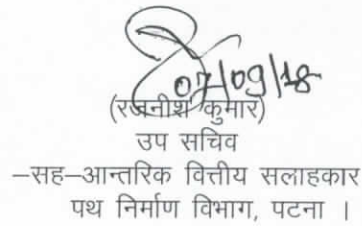 07/09/18
(रजनीश कुमार)
उप सचिव
–सह–आन्तरिक वित्तीय सलाहकार
पथ निर्माण विभाग, पटना ।